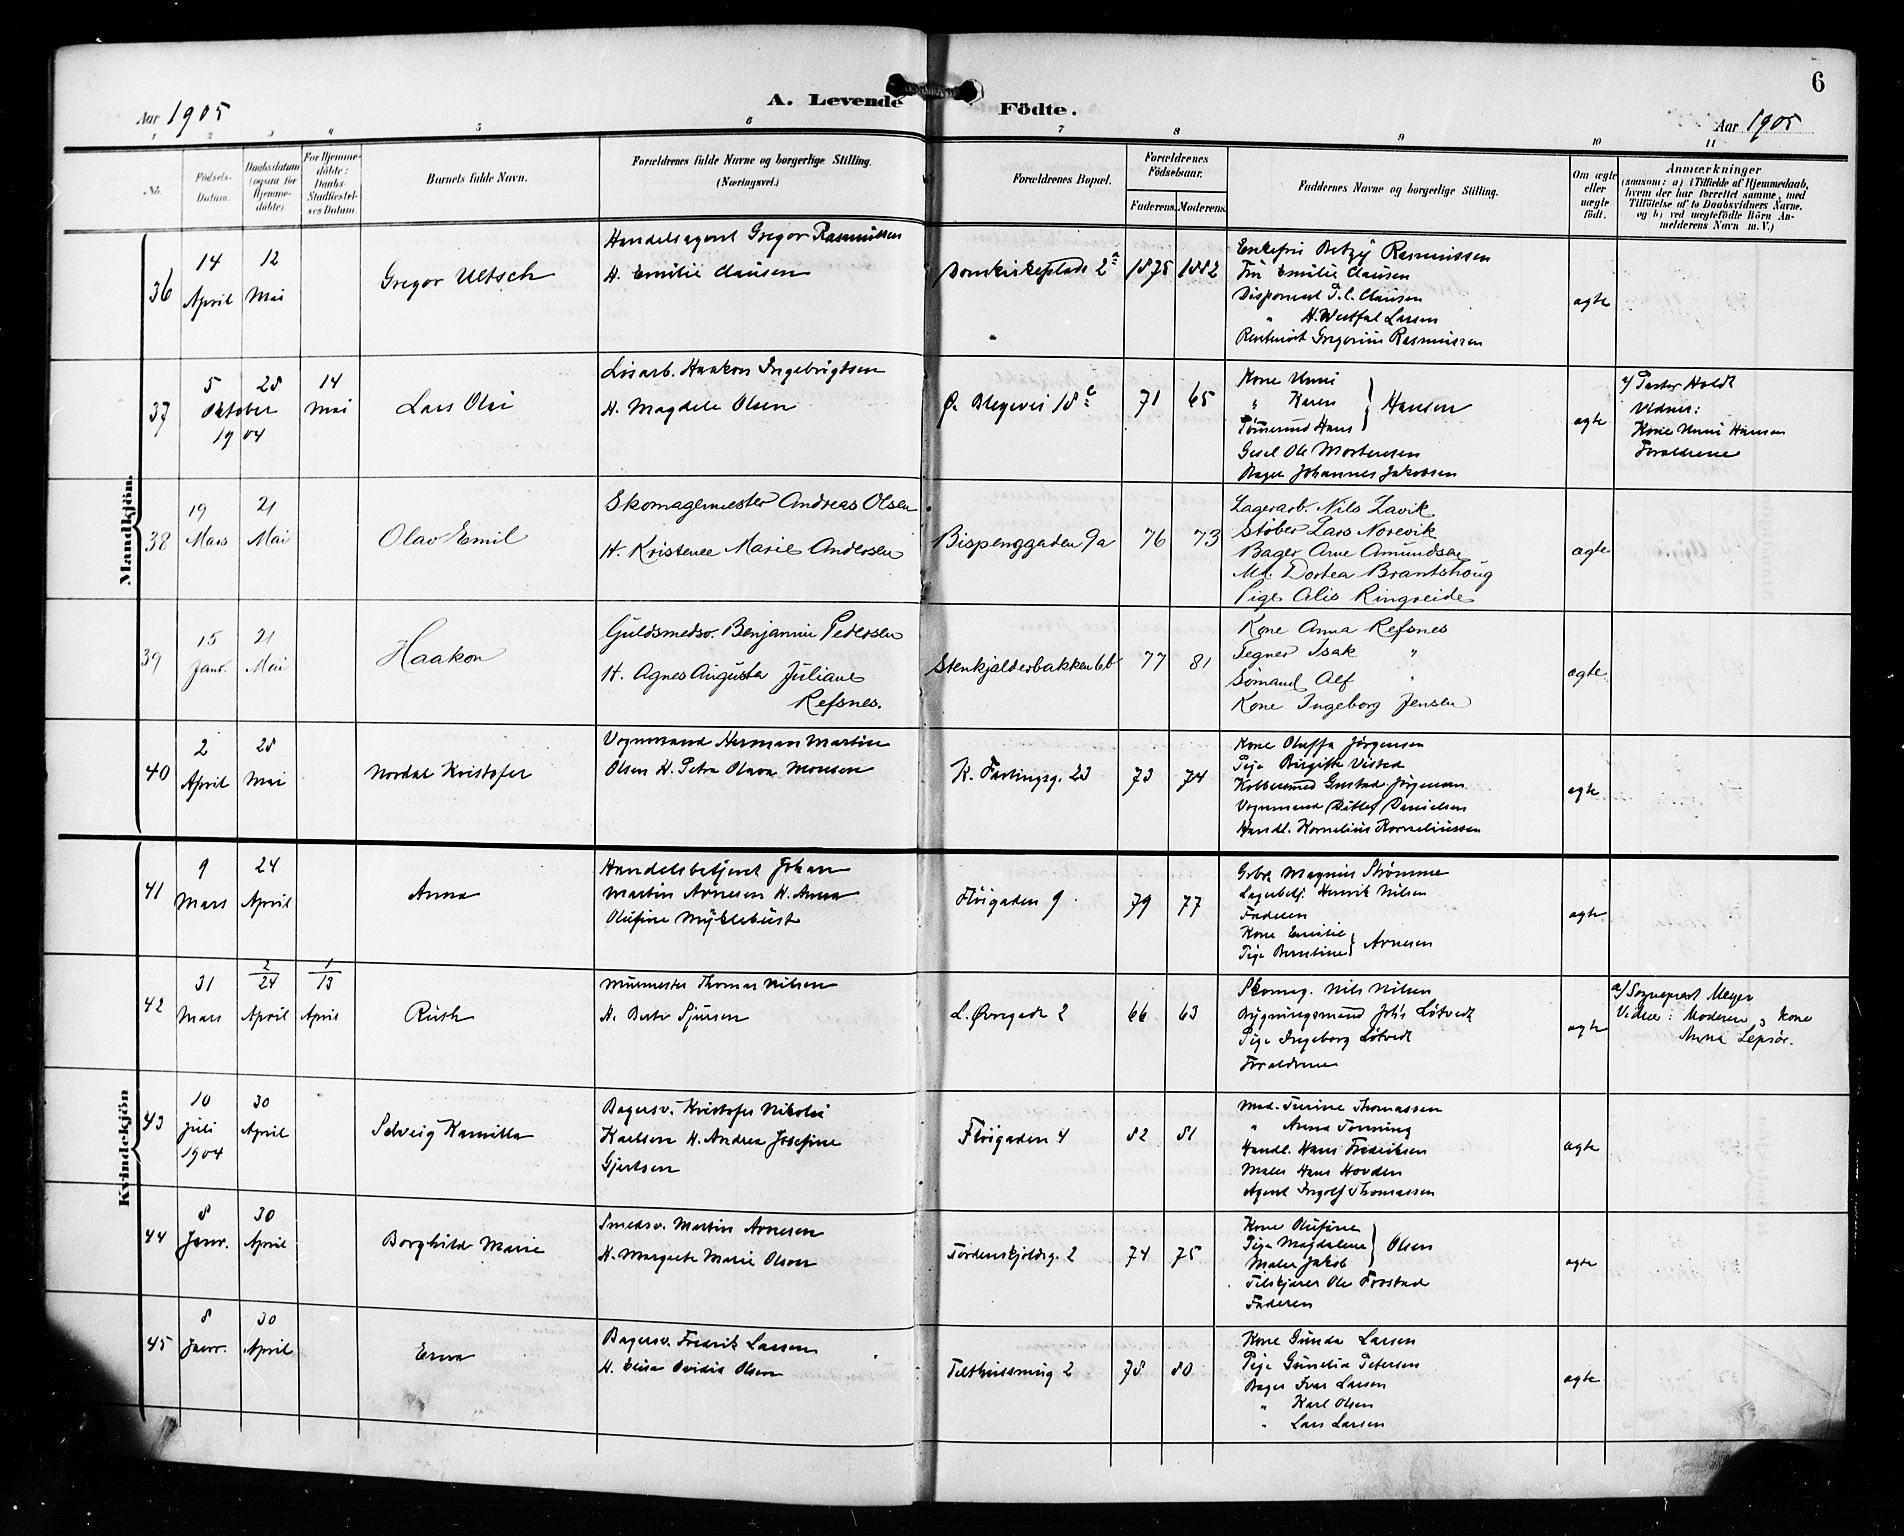 6
A. Levende Födte.
Aar 1905
Aar 1905
1 2 3 4 5 6 7 8 9 10 11
No.
Födsels-
Datum.
Daabsdatum
(ogsaa for
Hjemme-
döbte).
For Hjemme-
döbte:
Daabs-
Stadfæstel-
ses Datum.
Barnets fulde Navn.
Forældrenes fulde Navne og borgerlige Stilling.
(Næringsvei.)
Forældrenes Bopæl.
Forældrenes
Födselsaar.
Faderens.
Moderens.
Faddernes Navne og borgerlige Stilling.
Om ægte
eller
uægte
födt.
Anmærkninger
(saasom: a) i Tilfælde af Hjemmedaab,
hvem der har forrettet samme, med
Tilföielse af to Daabsvidners Navne.
og b) ved uægtefödte Börn An-
melderens Navn m. V.)
Mandkjön.
36
14
April
12
Mai
Gregor Ultsch
Handelsagent Gregor Rasmussen
H. Emilie Clausen
Domkirkeplads 2a
1875 1882
Enkefru Betzy Rasmussen
Fru Emilie Clausen
Disponent P. C. Clausen
" H. Westfal Larsen
Rentenist Gregorius Rasmussen
ægte
37
5
Oktober
1904
28
14
Mai
Lars Olai
Løsarb. Haakon Ingebrigtsen
H. Magdele Olsen
Ø. Blegevei 18c
71 65
Kone Unni
" Karen
Tømmermd Hans } Hansen
Gesel Ole Mortensen
Bager Johannes Jakobsen
ægte
a/ Pastor Holdt
Vidner:
Kone Unni Hansen
Forældrene
38
19
Mars
21
Mai
Olav Emil
Skomagermester Andreas Olsen
H. Kristense Marie Andersen
Bispenggaden 9a
76 73
Lagerarb. Nils Lavik
Støber Lars Norevik
Bager Arne Amundsen
Md. Dortea Brantshoug
Pige Alis Ringreide
ægte
39
15
Janr.
21
Mai
Haakon
Guldsmedsv. Benjamin Pedersen
H. Agnes Augusta Juliane
Refsnes.
Stenkjælderbakken 6b
77 81
Kone Anna Refsnes
Tegner Isak "
Sømand Alf "
Kone Ingeborg Jensen
ægte
40
2
April
28
Mai
Nordal Kristofer
Vognmand Herman Martin
Olsen H. Petra Olava Monsen
K. Fastingsg. 23
73 74
Kone Oluffa Jørgensen
Pige Birgitte Vestad
Gustav Jørgensen
Vognmand Ditlef Danielsen
Handl. Kornelius Korneliussen
ægte
Kvindekjön
41
9
Mars
24
April
Anna
Handelsbetjent Johan
Martin Arnesen H. Anna
Olufine Myklebust
Fløigaden 9
79 77
Magnus Strømme
Lagerbetj. Henrik Nilsen
Faderen
Kone Emilie
Pige Berntine } Arnesen
ægte
42
31
Mars
2/24
April
1/13
April
Ruth
Murmester Thomas Nilsen
H. Berte Sjursen
L. Øvregade 2
66 63
Skomag. Nils Nilsen
Bygningsmand Johs Løtvedt
Pige Ingeborg Løtvedt
Forældrene
ægte
a/ Sognepræst Meyer
Vidner: Moderen og Kone
Anna Lepsøe.
43
10
Juli
1904
30
April
Solveig Kamilla
Bagersv. Kristofer Nikolai
Karlsen H. Andrea Josefine
Gjertsen
Fløigaden 4
82 81
Mad. Turine Thomassen
" Anna Tonning
Handl. Hans Fredriksen
Maler Hans Hovden
Agent Ingolf Thomassen
ægte
44
8
Janr.
30
April
Borghild Marie
Smedsv. Martin Arnesen
H. Margrete Marie Olsen
Tordenskjoldsg. 2
74 75
Kone Olufine
Pige Magdalene
Maler Jakob } Olsen
Tilskjærer Ole Frostad
Faderen
ægte
45
8
Janr.
30
April
Erna
Bagersv. Fredrik Larsen
H. Elise Ovidia Olsen
Telthussmug 2
78 80
Kone Gunda Larsen
Pige Gunelia Petersen
Bager Ivar Larsen
" Karl Olsen
" Lars Larsen
ægte